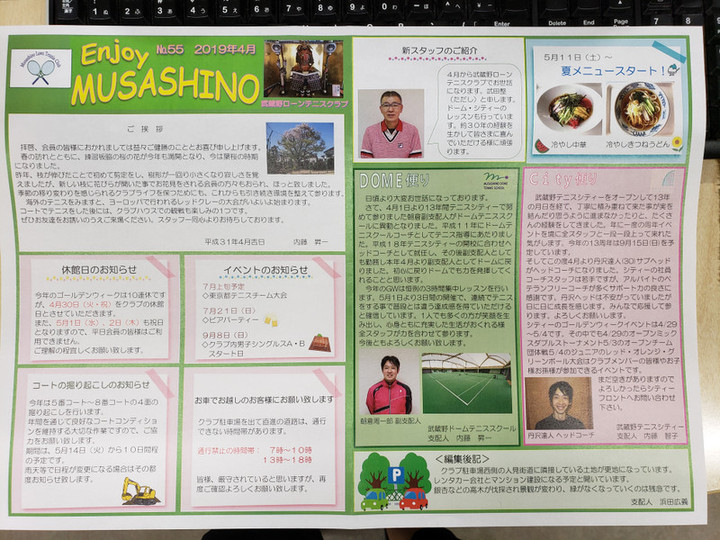 Enjoy
MUSASHINO
№55 2019年4月
武蔵野ローンテニスクラブ
ご 挨 拶
拝啓、会員の皆様におかれましては益々ご健勝のこととお喜び申し上げます。
春の訪れとともに、練習板脇の桜の花が今年も満開となり、今は葉桜の時期
になりました。
昨年、枝が伸びたことで初めて剪定をし、樹形が一回り小さくなり寂しさを覚
えましたが、新しい枝に花びらが開いた事でお花見をされる会員の方々もおられ、ほっと致しました。
季節の移り変わりを感じられるクラブライフを保つためにも、これからも引き続き環境を整えて参ります。
海外のテニスをみますと、ヨーロッパで行われるレッドクレーの大会がいよいよ始まります。
コートでテニスをした後には、クラブハウスでの観戦も楽しみの1つです。
ぜひお友達をお誘いのうえご来場ください、スタッフ一同心よりお待ちしております。
平成31年4月吉日 内藤 昇一
休館日のお知らせ
今年のゴールデンウィークは10連休です
が、4月30日(火・祝)をクラブの休館日
とさせていただきます。
また、5月1日(水)、2日(木)も祝日
となりますので、平日会員の皆様はご利
用できません。
ご理解の程宜しくお願い致します。
イベントのお知らせ
7月上旬予定
◇東京都テニスチーム大会
7月21日(日)
◇ビアパーティー
9月8日(日)
◇クラブ内男子シングルスA・B
スタート日
コートの掘り起こしのお知らせ
今年は5番コート~8番コートの4面の
掘り起こしを行います。
年間を通じて良好なコートコンディション
を維持する大切な作業ですので、ご協
力をお願い致します。
期間は、5月14日(火)から10日間程
の予定です。
雨天等で日程が変更になる場合はその都
度お知らせ致します。
お車でお越しのお客様にお願い致します
クラブ駐車場を出て直進の道路は、通行
できない時間帯があります。
通行禁止の時間帯: 7時~10時
13時~18時
皆様、厳守されていると思いますが、再
度ご確認よろしくお願い致します。
新スタッフのご紹介
4月から武蔵野ローン
テニスクラブでお世話
になります。武田整
(ただし)と申します。
ドーム・シティーの
レッスンも行っていま
す。約30年の経験を
生かして皆さまに喜ん
でいただける様に頑張
ります。
5月11日(土)~
夏メニュースタート!
冷やし中華
冷やしきつねうどん
DOME便り
日頃より大変お世話になっております。
さて、4月1日より13年間テニスシティーで努
めて参りました朝倉副支配人がドームテニスス
クールに異動となりました。平成11年にドームテ
ニススクールコーチとしてテニス指導にあたりまし
た。平成18年テニスシティーの開校に合わせヘ
ッドコーチとして就任し、その後副支配人として
も勤務し本年4月より副支配人としてドームに戻り
ました。初心に戻りドームでも力を発揮してく
れることと思います。
今年のGWは恒例の3時間集中レッスンを行い
ます。5月1日より3日間の開催で、連続でテニス
をする事で普段とは違う達成感を得ていただけ
る様強化しています。1人でも多くの方が笑顔を生
み出し、心身ともに充実した生活がおくれる様
全スタッフが力を合わせて参ります。
今後ともよろしくお願い致します。
朝倉進一郎 副支配人
武蔵野ドームテニススクール
支配人 内藤 昇一
City便り
武蔵野テニスシティーをオープンして13年
の月日を経て、丁寧に積み重ねて来た事が実
を結んだり思うように進まなかったりと、たくさ
んの経験をしてきました。年に一度の周年イベ
ントを境に全スタッフと一段一段と上って来れた
気がします。今年の13周年は9月15日(日)を予
定しています。
そしてこの度4月より丹沢達人(30)サブヘッ
ドがヘッドコーチになりました。シティーの社員
コーチスタッフは若手ですが、アルバイトのベ
テランフリーコーチが多くサポート力の良さに
感謝です。丹沢ヘッドは不安がっていましたが
日に日に成長を感じます。みんなで応援して参
ります。よろしくお願い致します。
シティーのゴールデンウィークイベントは4/29
~5/4です。その中でも4.29のオープンミック
スダブルストーナメント5/3のオープンチーム
団体戦5/4のジュニアのレッド・オレンジ・グ
リーンボール大会はクラブメンバーの皆様やお子
様お孫様が参加できるイベントです。
まだ空きがありますので
よろしかったらシティー
フロントへお問い合わせ
下さい。
丹沢達人 ヘッドコーチ
武蔵野テニスシティー
支配人 内藤 智子
<編集後記>
クラブ駐車場西側の人見街道に隣接している土地が更地になっています。
レンタカー会社とマンション建設になる予定と聞いています。
銀杏などの高木が伐採され景観が変わり、緑がなくなっていくのは残念です。
支配人 浜田広義